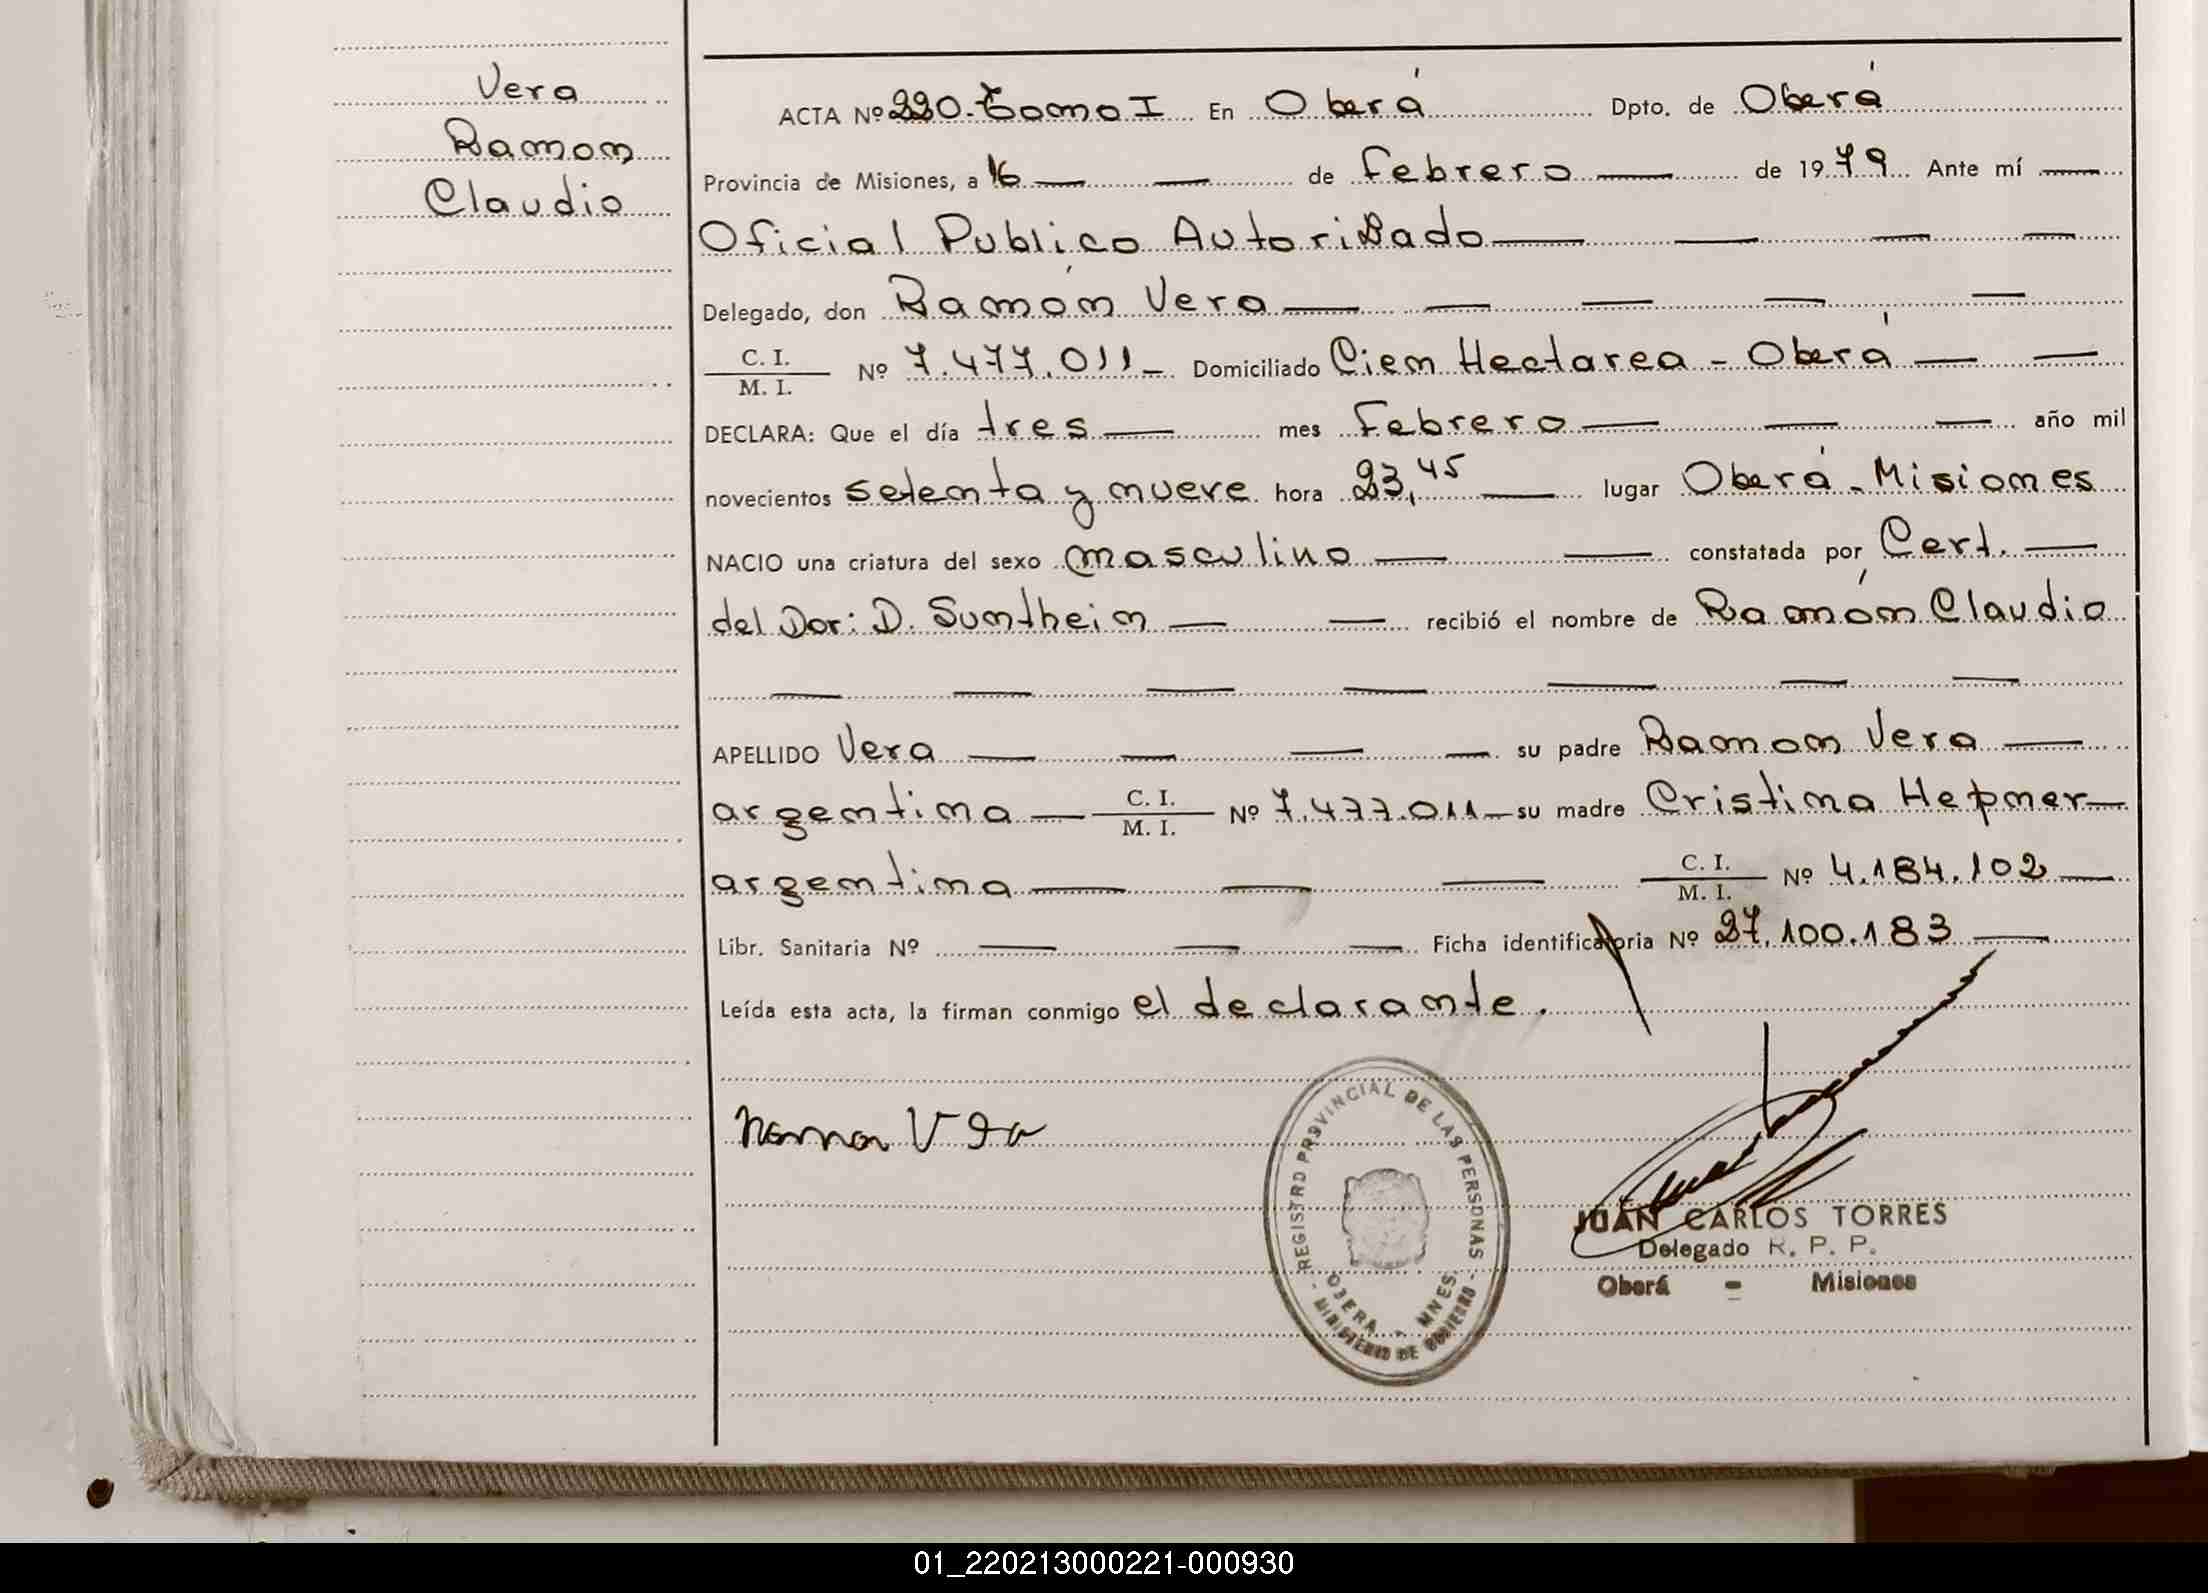 Vera
Ramon
Claudio
ACTA Nº 220. Tomo I En Oberá Dpto. de Oberá
Provincia de Misiones, a 16 — — de Febrero — de 1979 Ante mí —
Oficial Publico Autorizado — — — —
Delegado, don Ramón Vera — — — — —
C. I.
M. I. Nº 7.477.011 — Domiciliado Cien Hectarea - Oberá — —
DECLARA: Que el día tres — mes Febrero — — — año mil
novecientos setenta y nueve hora 23,45 — lugar Oberá - Misiones
NACIO una criatura del sexo masculino — — constatada por Cert. —
del Dor: D. Suntheim — — recibió el nombre de Ramón Claudio
— — — — — — —
APELLIDO Vera — — — — su padre Ramon Vera —
argentina — C. I.
M. I. Nº 7.477.011 — su madre Cristina Hepner —
argentina — — — C. I.
M. I. Nº 4.184.102 —
Libr. Sanitaria Nº — — — Ficha identificatoria Nº 27.100.183 —
Leída esta acta, la firman conmigo el declarante.
REGISTRO PROVINCIAL DE LAS PERSONAS
OBERA - MNES
- MINISTERIO DE GOBIERNO -
JUAN CARLOS TORRES
Delegado R. P. P.
Oberá - Misiones
01_220213000221-000930